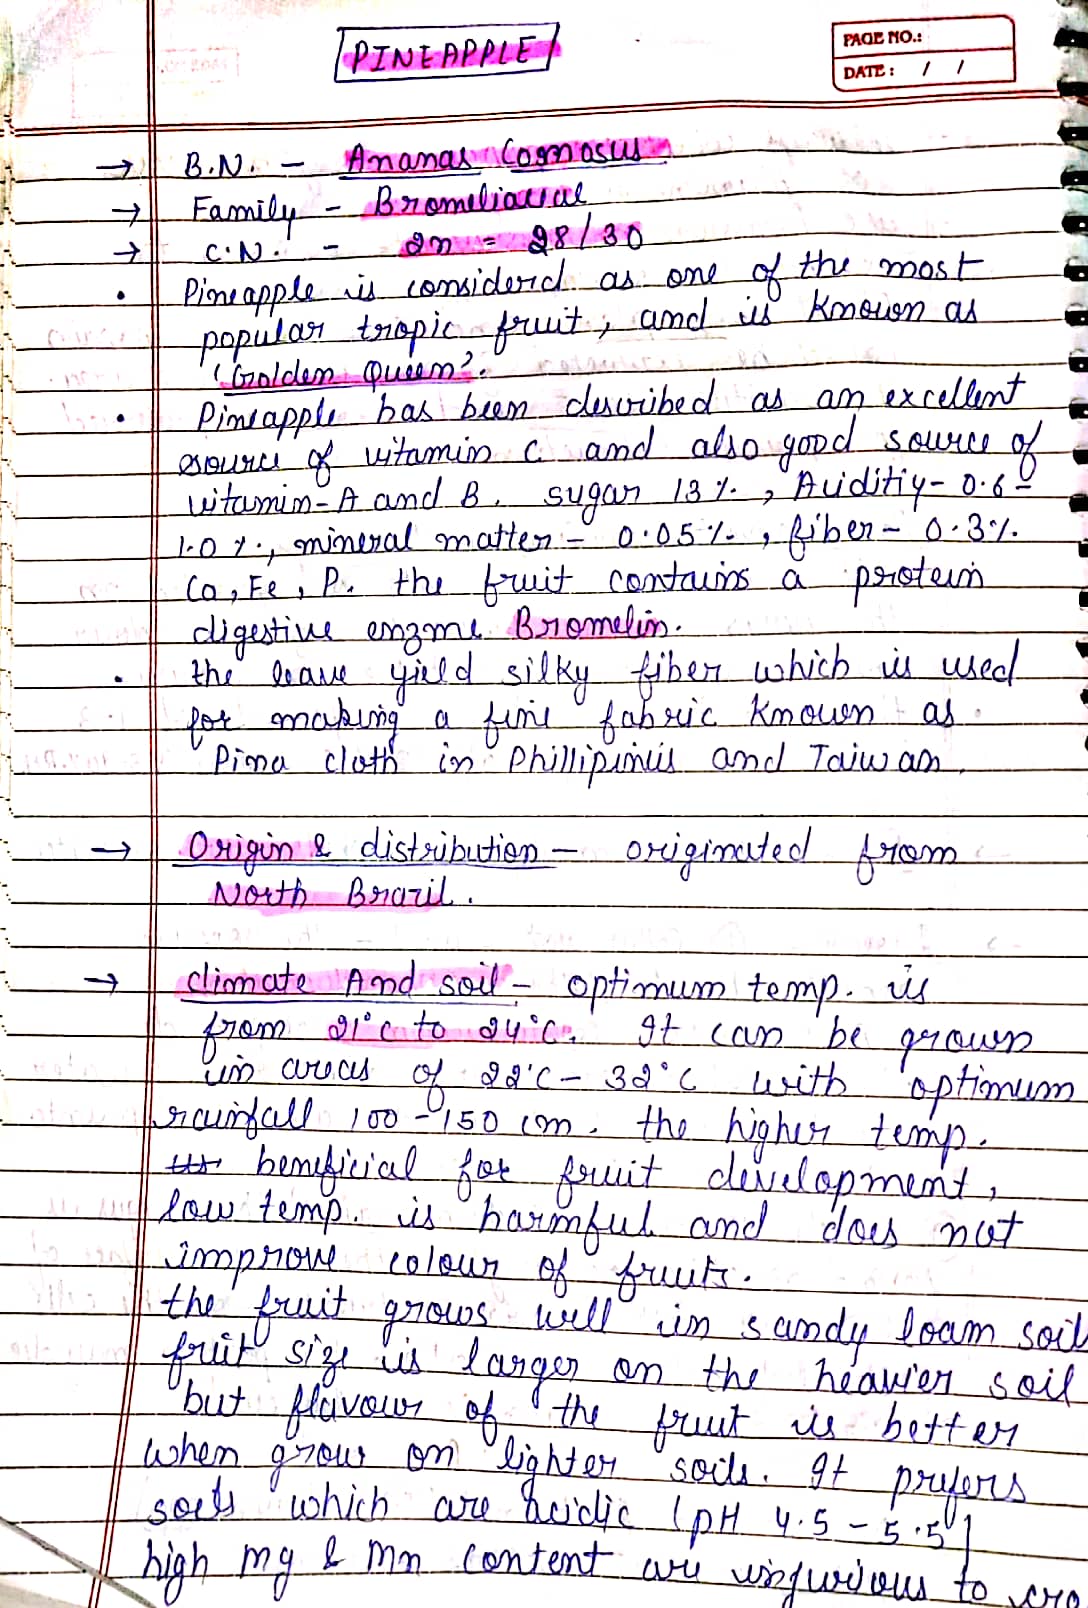 PINEAPPLE
PAGE NO.:
DATE: / /
→ B.N. - Ananas Comosus
→ Family - Bromeliaceae
→ C.N. - 2n = 28/30
• Pineapple is considerd as one of the most
popular tropic fruit, and is known as
'Golden Queen'.
• Pineapple has been described as an excellent
source of vitamin C and also good source of
vitamin-A and B. sugar 13%, Aciditiy- 0.6-
1.0%, mineral matter - 0.05%, fiber - 0.3%.
Ca, Fe, P. the fruit contains a protein
digestive enzme Bromelin.
• the leave yield silky fiber which is used
for making a fine fabric known as
Pina cloth in Phillipinies and Taiwan.
→ Origin & distribution - originated from
North Brazil.
→ climate And soil - optimum temp. is
from 21°c to 24°c. It can be grown
in areas of 22°C - 32°C with optimum
rainfall 100-150 cm. the higher temp.
beneficial for fruit development,
low temp. is harmful and does not
improve colour of fruits.
the fruit grows well in sandy loam soil
fruit size is larger on the heavier soil
but flavour of the fruit is better
when grow on lighter soils. It prefers
soils which are acidic (pH 4.5 - 5.5)
high mg & mn content are injurious to cro